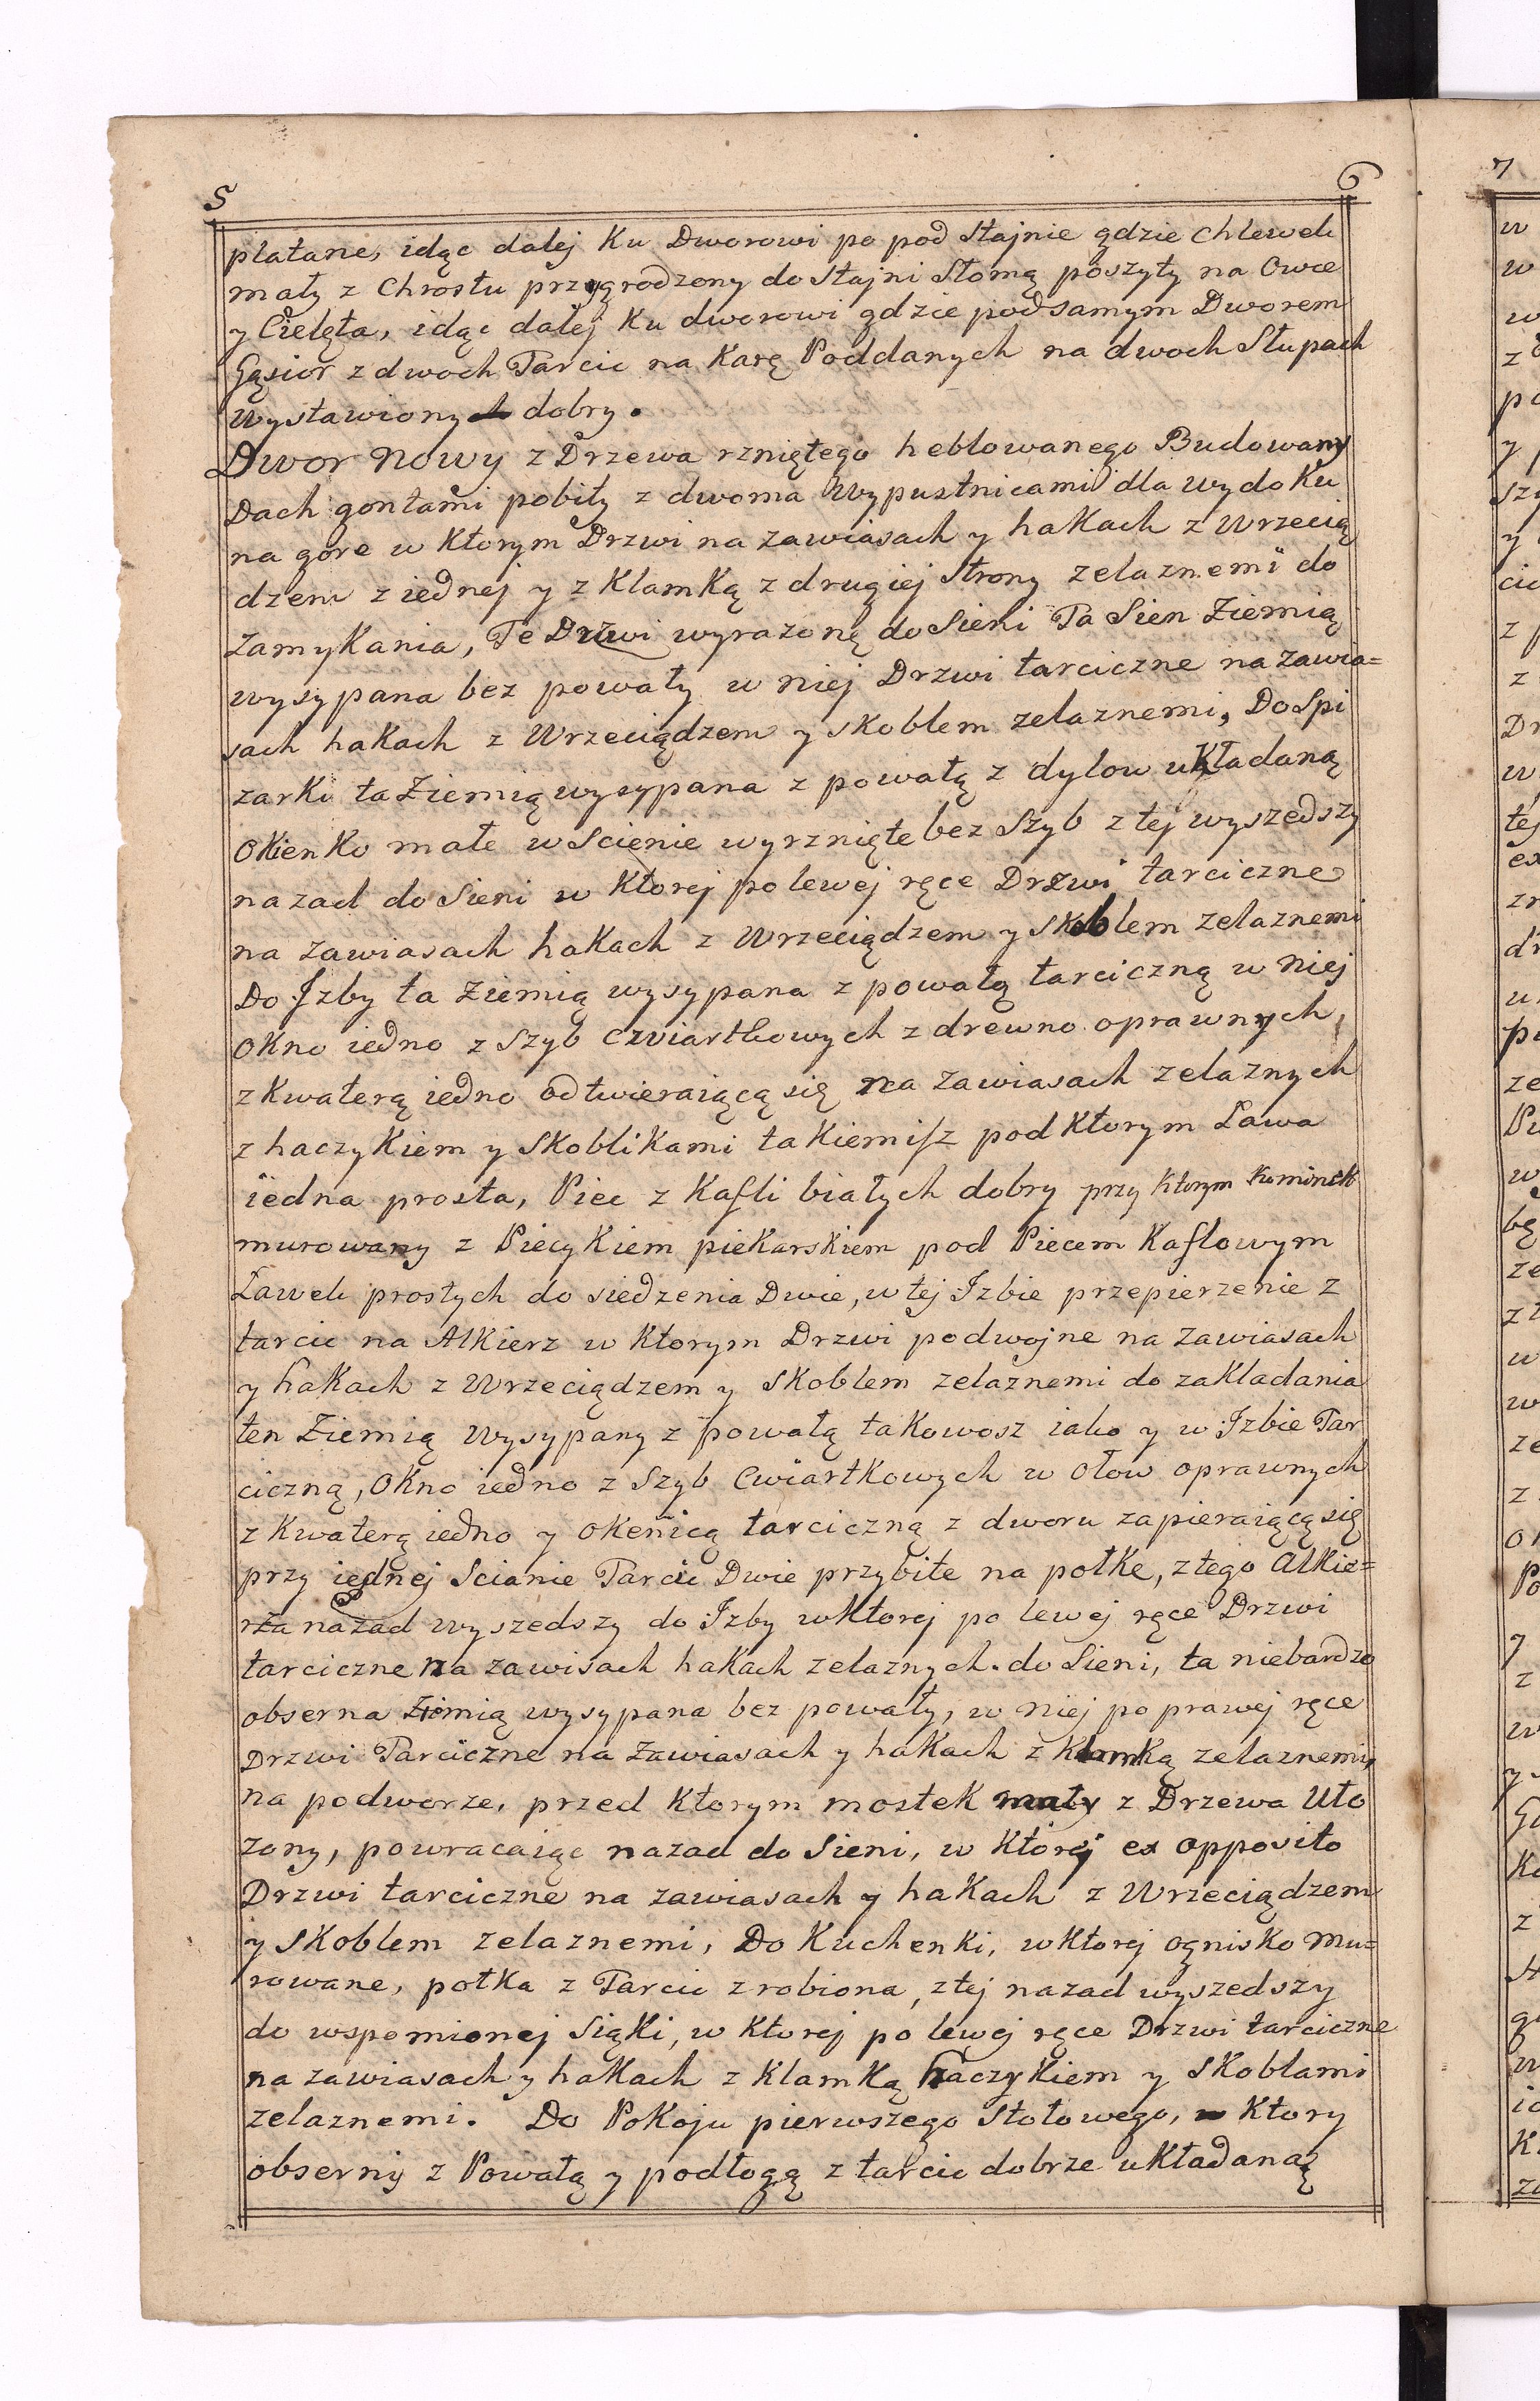 5
6
płatane, idąc dalej Ku Dworowi po pod Stajnie gdzie Chlewek
mały z Chrostu przygrodzony do Stajni Słomą poszyty na Owce
y Cielęta, idąc dalej Ku dworowi gdzie pod samym Dworem
Gąsior z dwoch Tarcic na Karę Poddanych na dwoch Słupach
Wystawiony dobry.
Dwor Nowy z Drzewa rzniętego heblowanego Budowany
Dach gontami pobity z dwoma Wypustnicami dla wydoku
na gore w Ktorym Drzwi na zawiasach y hakach z Wrzecią
dzem z iednej y z Klamką z drugiej Strony zelaznemi do
zamykania, Te Drzwi wyrazone do Sieni Ta Sien Ziemią
wysypana bez powały w Niej Drzwi tarciczne na zawia=
sach hakach z Wrzeciądzem y skoblem zelaznemi, Do Spi
zarki ta Ziemią wysypana z powałą z dylow układaną
Okienko małe w Scienie wyrznięte bez Szyb z tej wyszedszy
nazad do Sieni w Ktorej po lewej ręce Drzwi tarciczne
na zawiasach hakach z Wrzeciądzem y skoblem zelaznemi
Do Jzby ta Ziemią wysypana z powałą tarciczną w Niej
Okno iedno z Szyb Czwiartkowych z drewno oprawnych,
z Kwaterą iedno odtwieraiącą się na zawiasach zelaznych
z haczykiem y Skoblikami takiemisz pod Ktorym Ława
iedna prosta, Piec z Kafli białych dobry przy Ktorym Kominek
murowany z Piecykiem piekarskiem pod Piecem Kaflowym
Ławek prostych do siedzenia Dwie, w tej Jzbie przepierzenie z
tarcic na Alkierz w Ktorym Drzwi podwojne na Zawiasach
y hakach z Wrzeciądzem y Skoblem zelaznemi do zakladania
ten Ziemią Wysypany z powałą takowosz iako y w Jzbie Tar
ciczną, Okno iedno z Szyb Cwiartkowych w ołow oprawnych
z Kwaterą iedno y okenicą tarciczną z dworu zapieraiącą się
przy iednej Scianie Tarcic Dwie przybite na połke, z tego Alkie=
rza nazad wyszedszy do Jzby w Ktorej po lewej ręce Drzwi
tarciczne na zawisach hakach zelaznych. do Sieni, ta niebardzo
obserna Ziemią wysypana bez powały, w Niej po prawej ręce
Drzwi Tarciczne na Zawiasach y hakach z Klamką zelaznemi,
na podworze, przed Ktorym mostek mały z Drzewa Uło
zony, powracaiąc nazad do Sieni, w Ktorej ex opposito
Drzwi tarciczne na zawiasach y hakach z Wrzeciądzem
y Skoblem zelaznemi, Do Kuchenki, w Ktorej ognisko mu=
rowane, połka z Tarcic zrobiona, z tej nazad wyszedszy
do wspomionej Siąki, w Ktorej po lewej ręce Drzwi tarciczne
na zawiasach y hakach z Klamką haczykiem y Skoblami
zelaznemi. Do Pokoju pierwszego Stołowego, Ktory
obserny z Powałą y podłogą z tarcic dobrze układaną